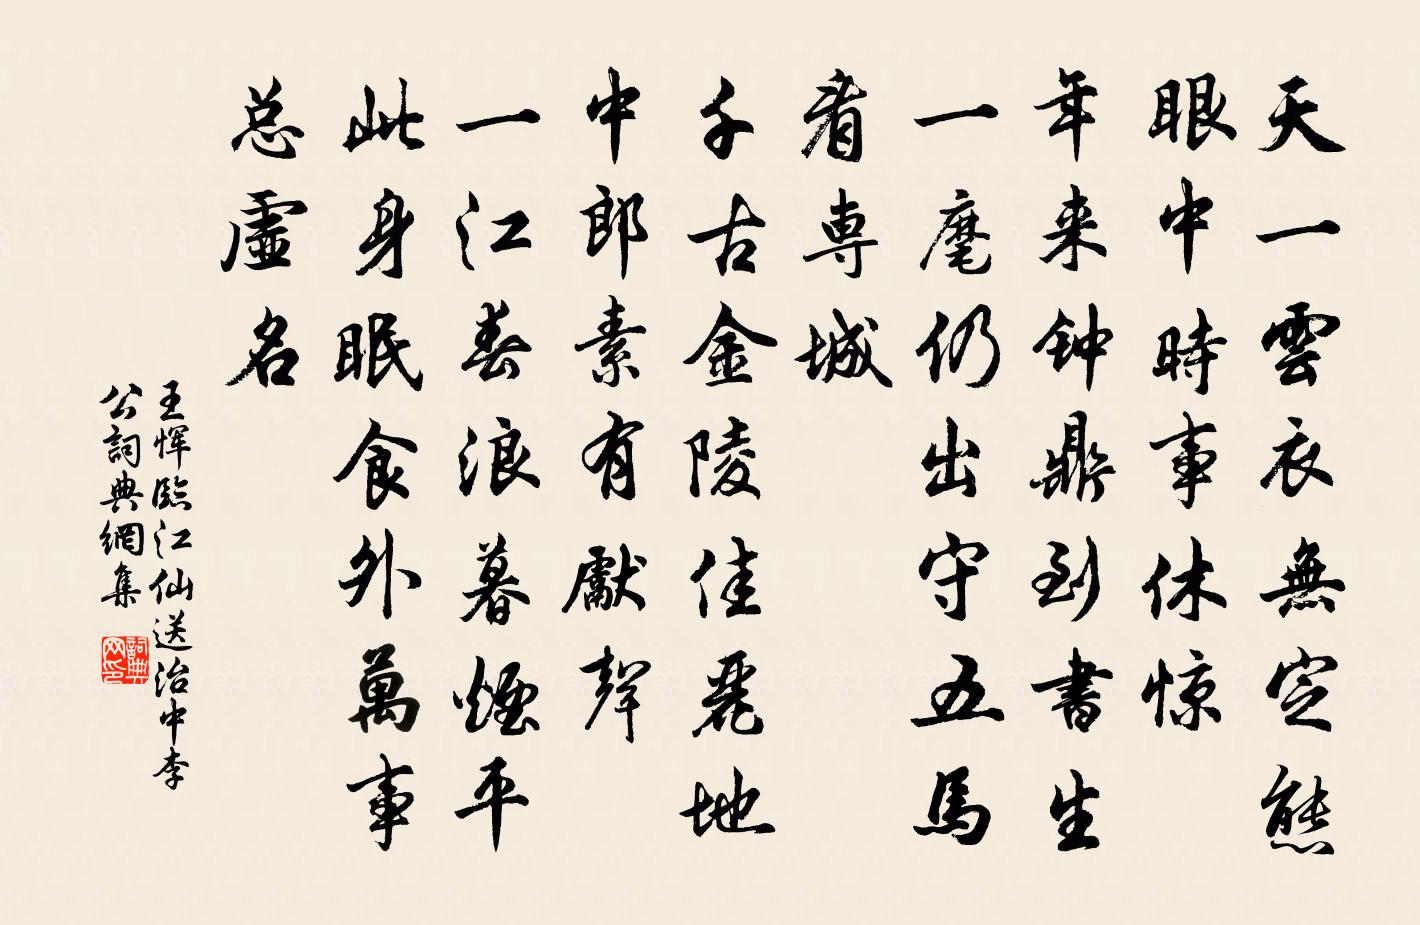 天一雲衣無定態
眼中時事休惊
年来钟鼎到書生
一麾仍出守五馬
看専城
千古金陵佳麗地
中郎素有獻聲
一江春浪暮煙平
此身眠食外萬事
总虛名
王惲臨江仙送治中李
公詞典網集
詞典
网印